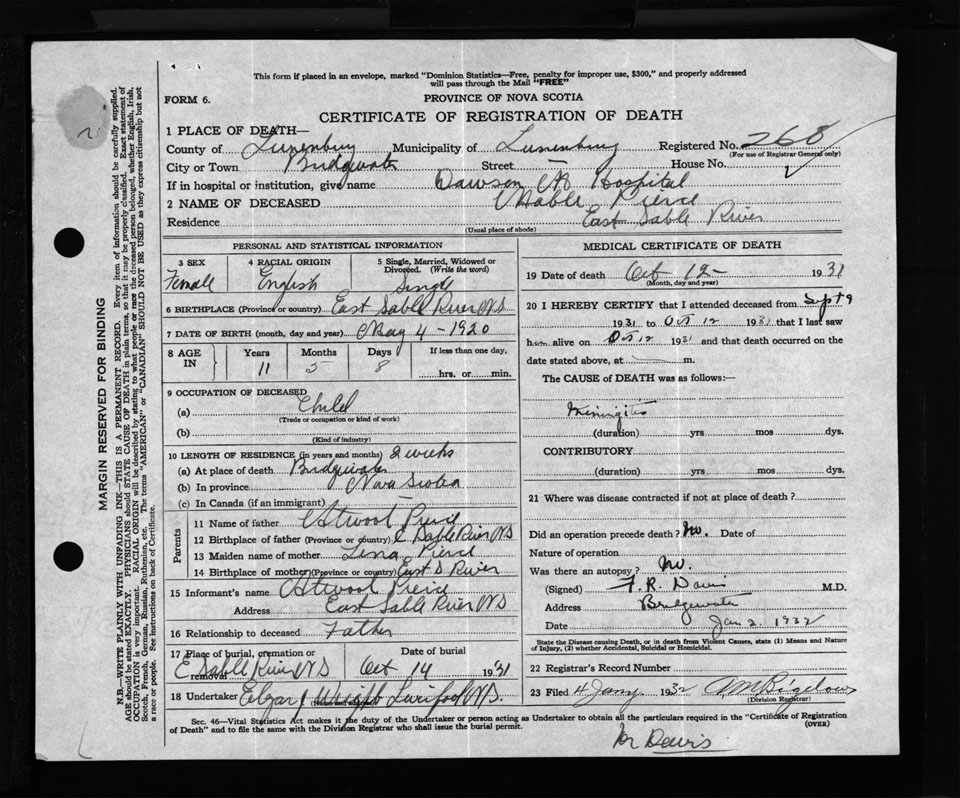 This form if placed in an envelope, marked "Dominion Statistics—Free, penalty for improper use, $300," and properly addressed
will pass through the Mail "FREE"
FORM 6.
PROVINCE OF NOVA SCOTIA
CERTIFICATE OF REGISTRATION OF DEATH
1 PLACE OF DEATH—
County of Lunenburg Municipality of Lunenburg Registered No. 268
(For use of Registrar General only)
City or Town Bridgewater Street — House No.
If in hospital or institution, give name Dawson Hospital
2 NAME OF DECEASED Mable Pierce
Residence East Sable River
(Usual place of abode)
PERSONAL AND STATISTICAL INFORMATION
3 SEX Female
4 RACIAL ORIGIN English
5 Single, Married, Widowed or Divorced. (Write the word) Single
6 BIRTHPLACE (Province or country) East Sable River NS
7 DATE OF BIRTH (month, day and year) May 4 - 1920
8 AGE IN Years 11 Months 5 Days 8 If less than one day, hrs. or min.
9 OCCUPATION OF DECEASED
(a) Child
(Trade or occupation or kind of work)
(b)
(Kind of industry)
10 LENGTH OF RESIDENCE (in years and months) 2 weeks
(a) At place of death Bridgewater
(b) In province Nova Scotia
(c) In Canada (if an immigrant)
Parents
11 Name of father Atwood Pierce
12 Birthplace of father (Province or country) E Sable River NS
13 Maiden name of mother Lena Pierce
14 Birthplace of mother (Province or country) East S River
15 Informant's name Atwood Pierce
Address East Sable River NS
16 Relationship to deceased Father
17 Place of burial, cremation or removal E Sable River NS Date of burial Oct 14 1931
18 Undertaker Elgar Liverpool N.S.
MEDICAL CERTIFICATE OF DEATH
19 Date of death Oct 12 - 1931
(Month, day and year)
20 I HEREBY CERTIFY that I attended deceased from Sept 9
1931 to Oct 12 1931 that I last saw
her alive on Oct 12 1931 and that death occurred on the
date stated above, at m.
The CAUSE of DEATH was as follows:
Meningitis
(duration) yrs mos dys.
CONTRIBUTORY
(duration) yrs mos dys.
21 Where was disease contracted if not at place of death?
Did an operation precede death? No. Date of
Nature of operation
Was there an autopsy? No.
(Signed) F. R. Davis M.D.
Address Bridgewater
Date Jan 2. 1932
State the Disease causing Death, or in death from Violent Causes, state (1) Means and Nature
of Injury, (2) whether Accidental, Suicidal or Homicidal.
22 Registrar's Record Number
23 Filed 4 Jany 1932
(Division Registrar)
Sec. 46—Vital Statistics Act makes it the duty of the Undertaker or person acting as Undertaker to obtain all the particulars required in the "Certificate of Registration
of Death" and to file the same with the Division Registrar who shall issue the burial permit.
(OVER)
Dr Davis
MARGIN RESERVED FOR BINDING
N.B.—WRITE PLAINLY WITH UNFADING INK—THIS IS A PERMANENT RECORD. Every item of information should be carefully supplied.
AGE should be stated EXACTLY. PHYSICIANS should STATE CAUSE OF DEATH in plain terms, so that it may be properly classified. Exact statement of
OCCUPATION is very important. RACIAL ORIGIN will be described by stating to what people or race the deceased person belonged, whether English, Irish,
Scotch, French, German, Russian, Ruthenian, etc. The terms "AMERICAN" or "CANADIAN" SHOULD NOT BE USED as they express citizenship but not
a race or people. See instructions on back of Certificate.